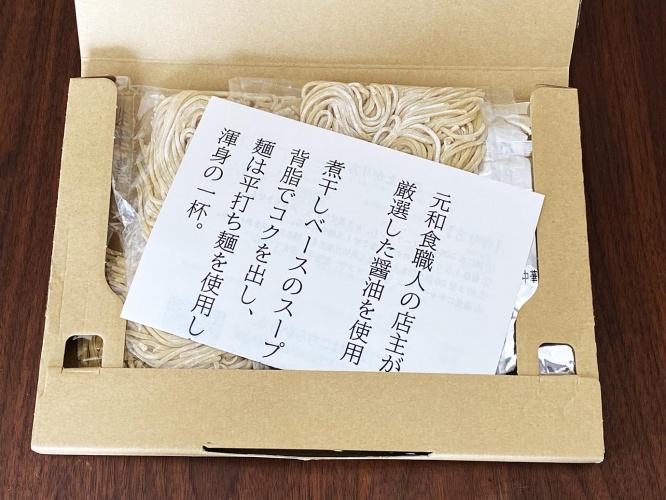 元和食職人の店主が
厳選した醤油を使用
煮干しベースのスープ
背脂でコクを出し、
麺は平打ち麺を使用し
渾身の一杯。
中華